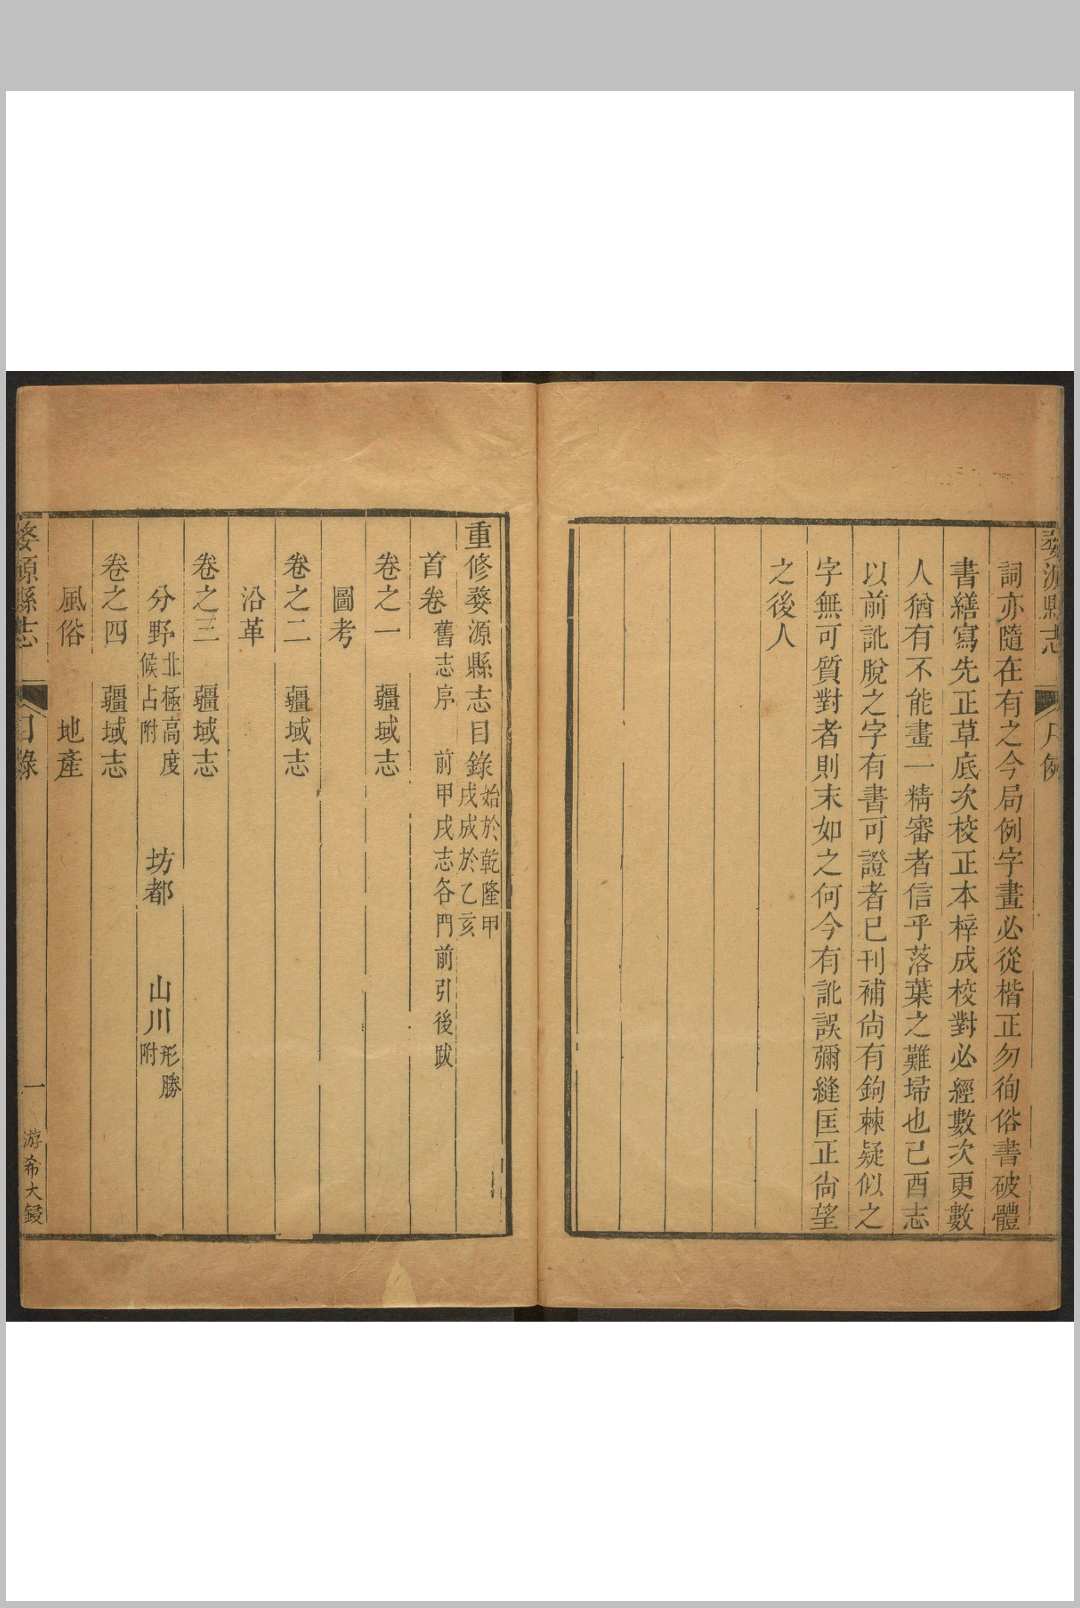 婺源縣志
凡例
詞亦隨在有之今局例字畫必從楷正勿徇俗書破體
書繕寫先正草底次校正本梓成校對必經數次更數
人猶有不能畫一精審者信乎落葉之難埽也己酉志
以前訛脫之字有書可證者已刊補尙有鉤棘疑似之
字無可質對者則末如之何今有訛誤彌縫匡正尙望
之後人
重修婺源縣志目錄始於乾隆甲戌成於乙亥
首卷舊志序 前甲戌志各門前引後跋
卷之一 疆域志
圖考
卷之二 疆域志
沿革
卷之三 疆域志
分野北極高度候占附 坊都 山川形勝附
卷之四 疆域志
風俗 地產
婺源縣志
目錄
一
游希大鋟